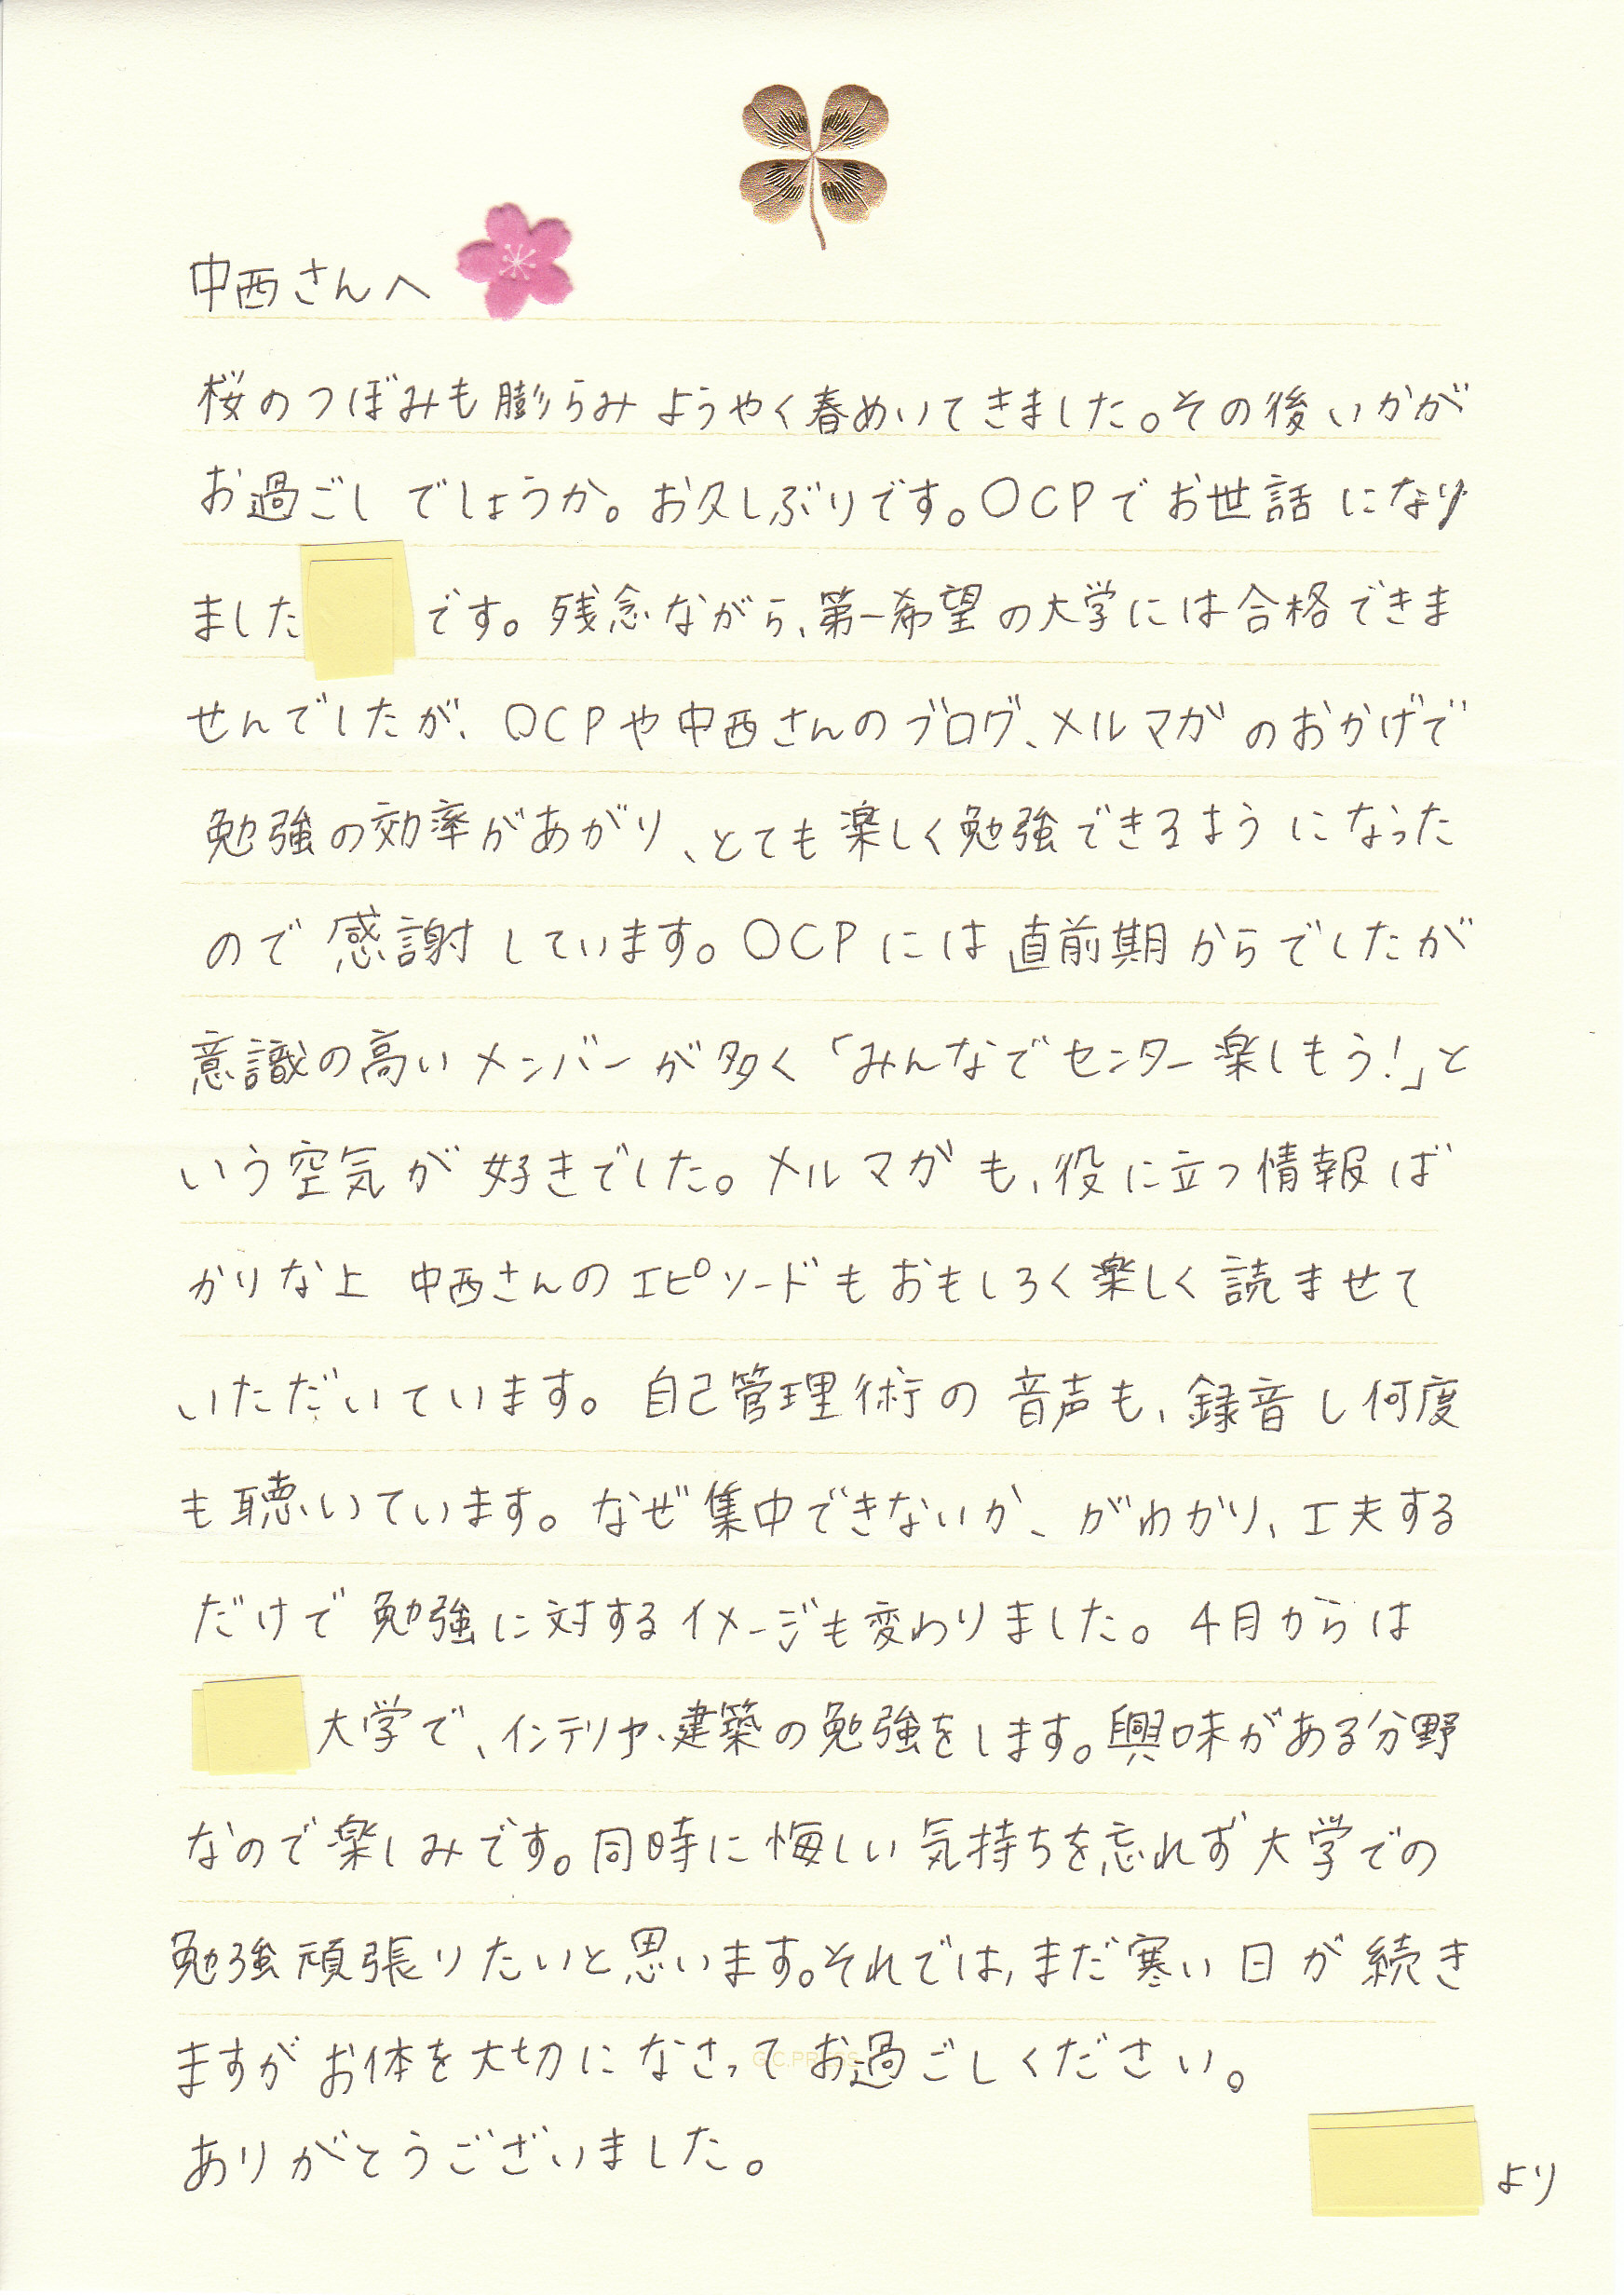 中西さんへ
桜のつぼみも膨らみようやく春めいてきました。その後いかが
お過ごしでしょうか。お久しぶりです。OCPでお世話になり
ました
です。残念ながら、第一希望の大学には合格できま
せんでしたが、OCPや中西さんのブログ、メルマガのおかげで
勉強の効率があがり、とても楽しく勉強できるようになった
ので感謝しています。OCPには直前期からでしたが
意識の高いメンバーが多く「みんなでセンター楽しもう!」と
いう空気が好きでした。メルマガも、役に立つ情報ば
かりな上 中西さんのエピソードもおもしろく楽しく読ませて
いただいています。自己管理術の音声も、録音し何度
も聴いています。なぜ集中できないか、がわかり、工夫する
だけで勉強に対するイメージも変わりました。4月からは
大学で、インテリア・建築の勉強をします。興味がある分野
なので楽しみです。同時に悔しい気持ちを忘れず大学での
勉強頑張りたいと思います。それでは、まだ寒い日が続き
ますがお体を大切になさってお過ごしください。
G.C.PRESS
ありがとうございました。
より